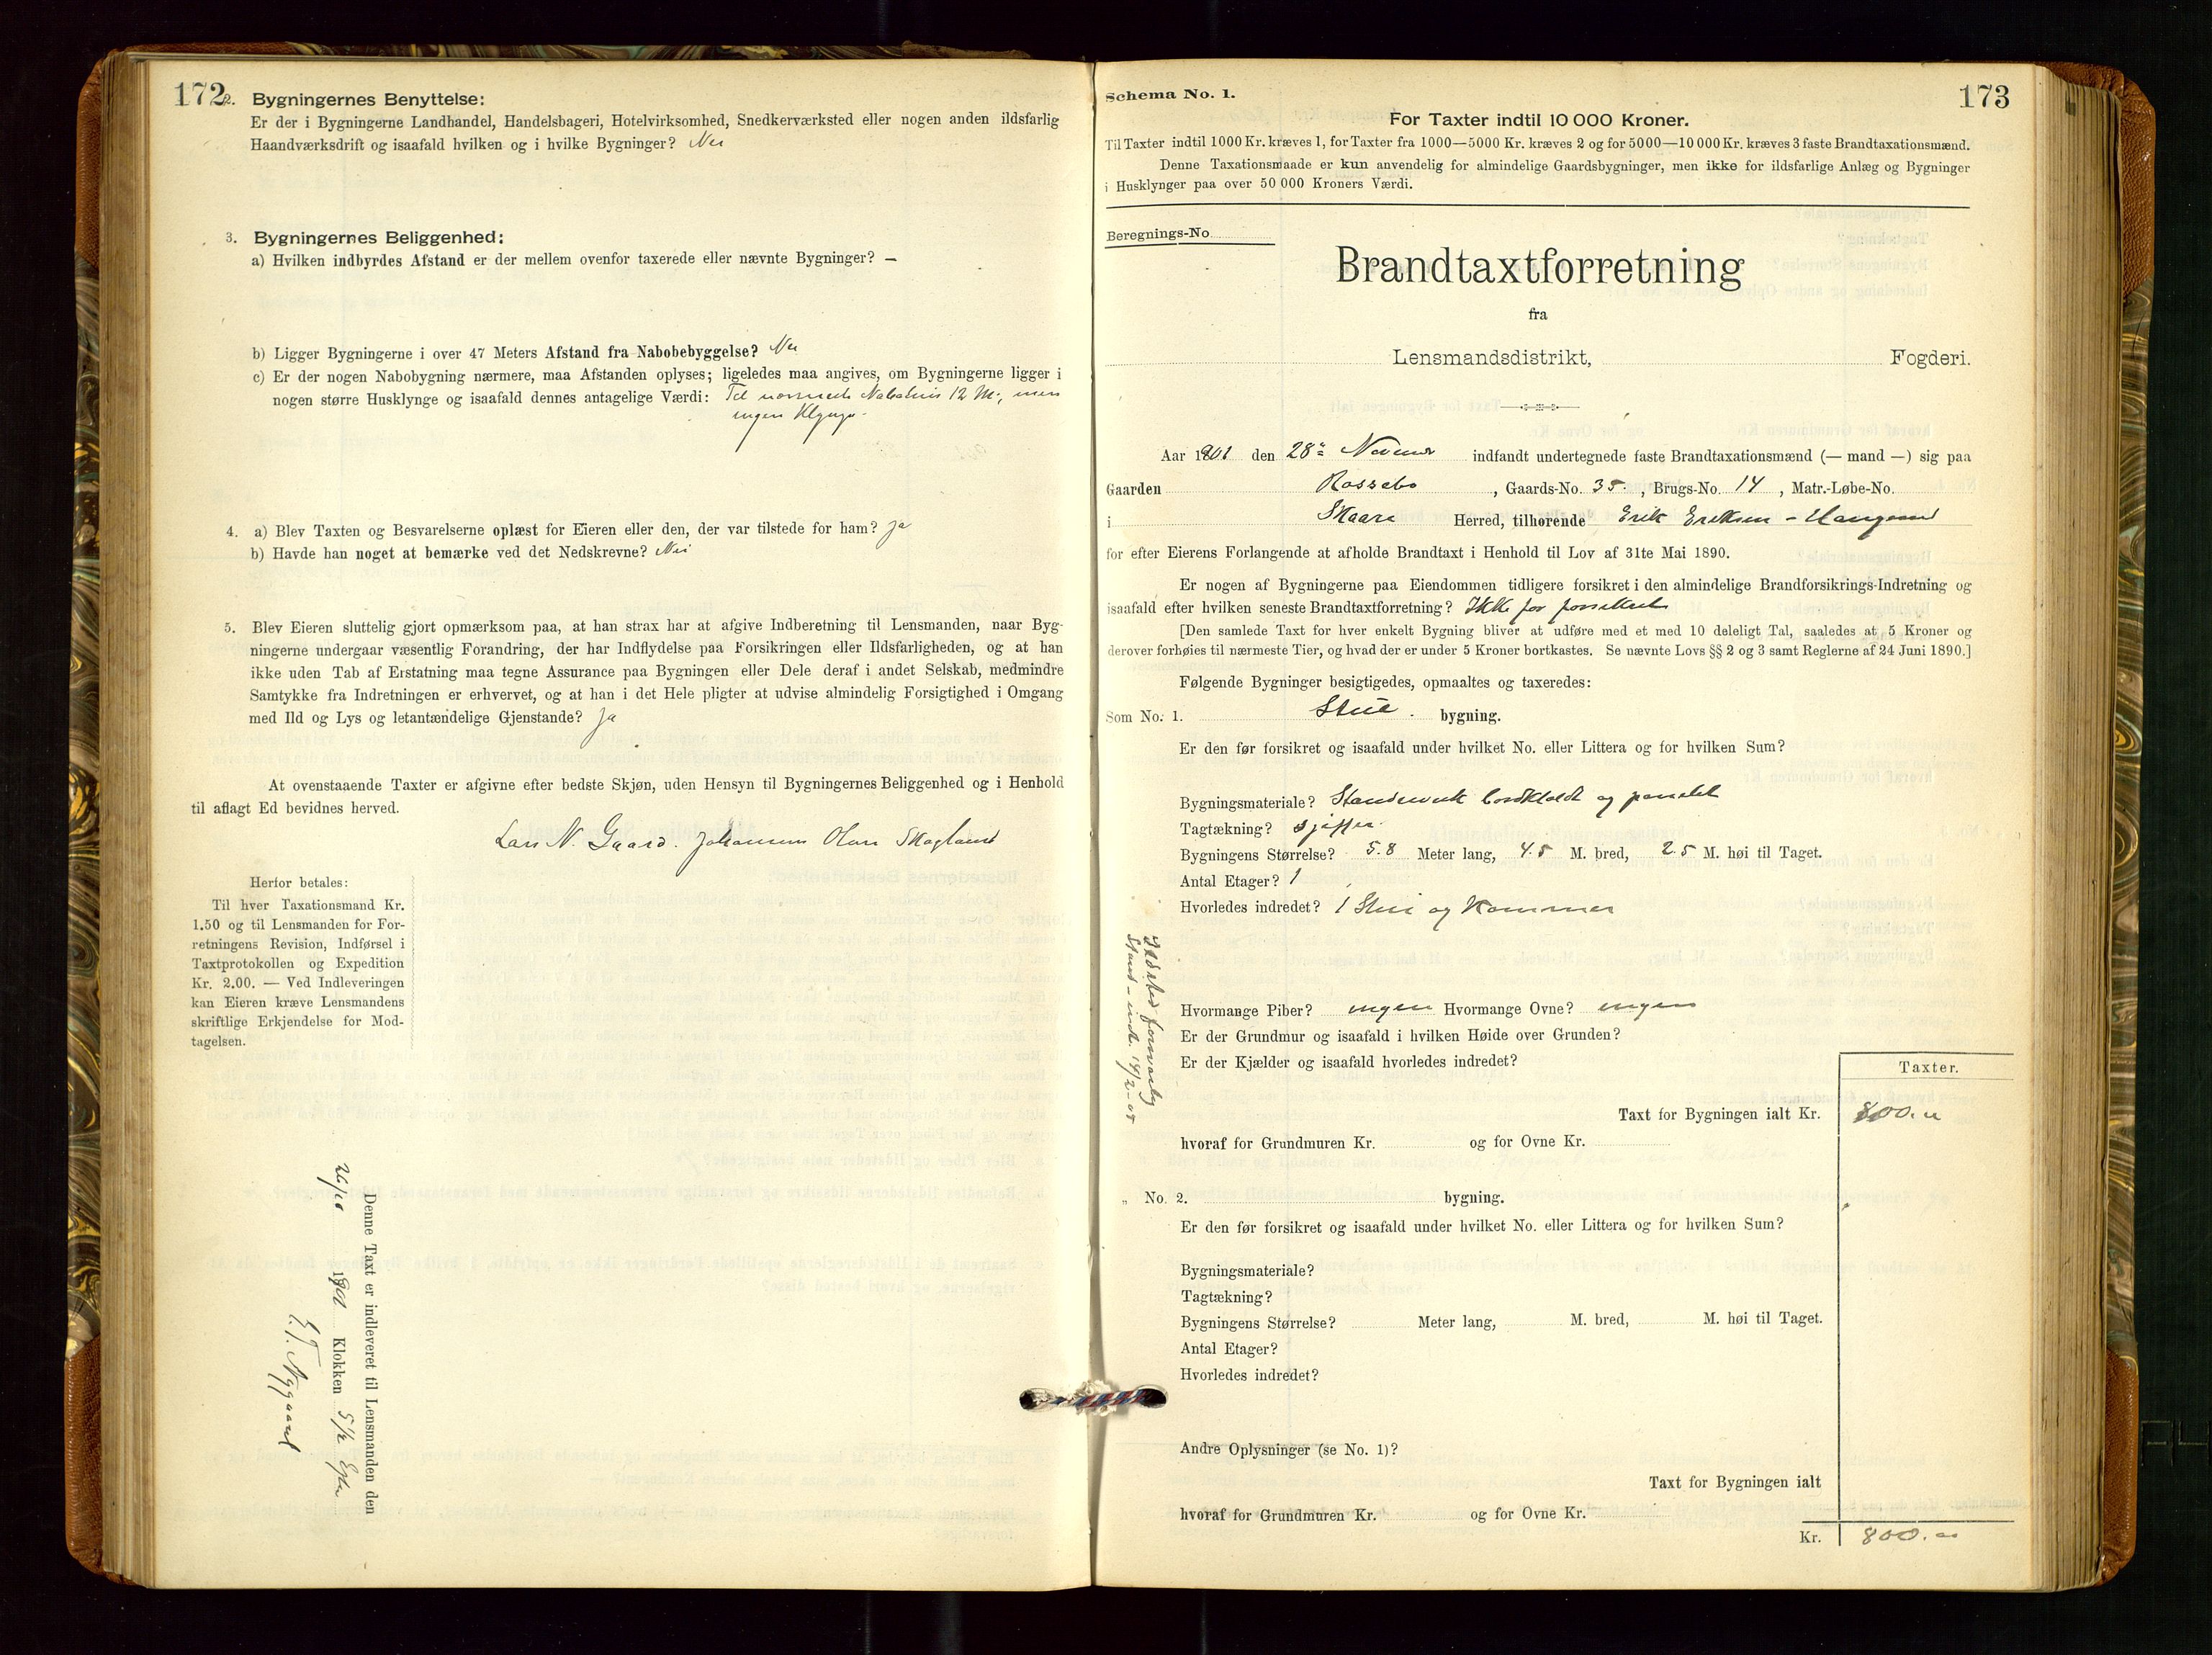 172
2. Bygningernes Benyttelse:
Er der i Bygningerne Landhandel, Handelsbageri, Hotelvirksomhed, Snedkerværksted eller nogen anden ildsfarlig
Haandværksdrift og isaafald hvilken og i hvilke Bygninger? Nei
3. Bygningernes Beliggenhed:
a) Hvilken indbyrdes Afstand er der mellem ovenfor taxerede eller nævnte Bygninger? —
b) Ligger Bygningerne i over 47 Meters Afstand fra Nabobebyggelse? Nei
c) Er der nogen Nabobygning nærmere, maa Afstanden oplyses; ligeledes maa angives, om Bygningerne ligger i
nogen større Husklynge og isaafald dennes antagelige Værdi: Til nærmeste Nabohus 12 M., men
ingen Klynge.
4. a) Blev Taxten og Besvarelserne oplæst for Eieren eller den, der var tilstede for ham? Ja
b) Havde han noget at bemærke ved det Nedskrevne? Nei
5. Blev Eieren sluttelig gjort opmærksom paa, at han strax har at afgive Indberetning til Lensmanden, naar Byg-
ningerne undergaar væsentlig Forandring, der har Indflydelse paa Forsikringen eller Ildsfarligheden, og at han
ikke uden Tab af Erstatning maa tegne Assurance paa Bygningen eller Dele deraf i andet Selskab, medmindre
Samtykke fra Indretningen er erhvervet, og at han i det Hele pligter at udvise almindelig Forsigtighed i Omgang
med Ild og Lys og letantændelige Gjenstande? Ja
At ovenstaaende Taxter er afgivne efter bedste Skjøn, uden Hensyn til Bygningernes Beliggenhed og i Henhold
til aflagt Ed bevidnes herved.
Lars N. Gaard. Johannes Olsen Skogland
Herfor betales:
Til hver Taxationsmand Kr.
1.50 og til Lensmanden for For-
retningens Revision, Indførsel i
Taxtprotokollen og Expedition
Kr. 2.00. — Ved Indleveringen
kan Eieren kræve Lensmandens
skriftlige Erkjendelse for Mod-
tagelsen.
Denne Taxt er indleveret til Lensmanden den
1901 Klokken 5 1/2 Efm
Nygaard
173
Schema No. 1.
For Taxter indtil 10 000 Kroner.
Til Taxter indtil 1000 Kr. kræves 1, for Taxter fra 1000—5000 Kr. kræves 2 og for 5000—10 000 Kr. kræves 3 faste Brandtaxationsmænd.
Denne Taxationsmaade er kun anvendelig for almindelige Gaardsbygninger, men ikke for ildsfarlige Anlæg og Bygninger
i Husklynger paa over 50 000 Kroners Værdi.
Beregnings-No.
Brandtaxtforretning
fra
Lensmandsdistrikt, Fogderi.
Aar 1901 den 28de Novemb indfandt undertegnede faste Brandtaxationsmænd (— mand —) sig paa
Gaarden Rossebø, Gaards-No. 35, Brugs-No. 14, Matr.-Løbe-No.
i Skaare Herred, tilhørende Erik Eriksen - Haugesund
for efter Eierens Forlangende at afholde Brandtaxt i Henhold til Lov af 31te Mai 1890.
Er nogen af Bygningerne paa Eiendommen tidligere forsikret i den almindelige Brandforsikrings-Indretning og
isaafald efter hvilken seneste Brandtaxtforretning? Ikke før forsikret
[Den samlede Taxt for hver enkelt Bygning bliver at udføre med et med 10 deleligt Tal, saaledes at 5 Kroner og
derover forhøies til nærmeste Tier, og hvad der er under 5 Kroner bortkastes. Se nævnte Lovs §§ 2 og 3 samt Reglerne af 24 Juni 1890.]
Følgende Bygninger besigtigedes, opmaaltes og taxeredes:
Som No. 1. Stue. bygning.
Er den før forsikret og isaafald under hvilket No. eller Littera og for hvilken Sum?
Bygningsmateriale? Standerverk bordklædt og panelet
Tagtækning? Skiffer.
Bygningens Størrelse? 5.8 Meter lang, 4.5 M. bred, 2.5 M. høi til Taget.
Antal Etager? 1
Hvorledes indredet? 1 Stue og Kammer
Hvormange Piber? ingen Hvormange Ovne? ingen
Er der Grundmur og isaafald i hvilken Høide over Grunden?
Er der Kjælder og isaafald hvorledes indredet?
Taxter.
Taxt for Bygningen ialt Kr. 800.
hvoraf for Grundmuren Kr. og for Ovne Kr.
Ildsted forsvarlig
14/2-08
„ No. 2. bygning.
Er den før forsikret og isaafald under hvilket No. eller Littera og for hvilken Sum?
Bygningsmateriale?
Tagtækning?
Bygningens Størrelse? Meter lang, M. bred, M. høi til Taget.
Antal Etager?
Hvorledes indredet?
Andre Oplysninger (se No. 1)?
Taxt for Bygningen ialt
hvoraf for Grundmuren Kr. og for Ovne Kr.
Kr. 800.